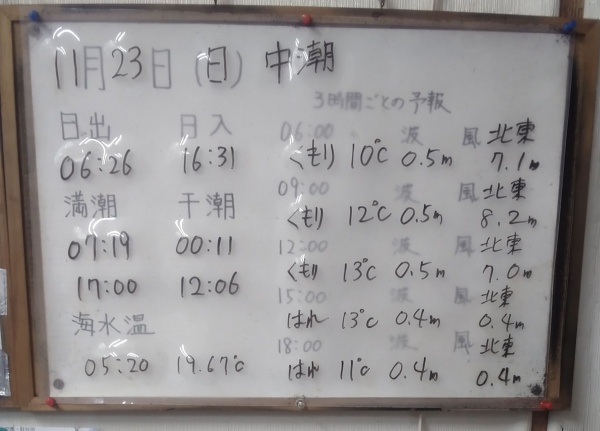 11月23日(日) 中潮
3時間ごとの予報
日出 日入
06:26 16:31
満潮 干潮
07:19 00:11
17:00 12:06
海水温
05:20 19.67℃
06:00 波 風 北東
くもり 10℃ 0.5m 7.1m
09:00 波 風 北東
くもり 12℃ 0.5m 8.2m
12:00 波 風 北東
くもり 13℃ 0.5m 7.0m
15:00 波 風 北東
はれ 13℃ 0.4m 0.4m
18:00 波 風 北東
はれ 11℃ 0.4m 0.4m